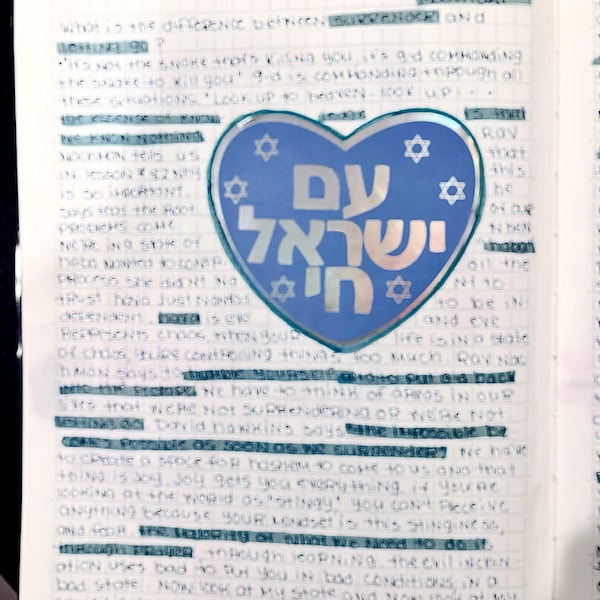 What is the difference between surrender and
letting go?
"It's not the snake that's killing you, it's g-d commanding
the snake to kill you" g-d is commanding through all
these situations. "Look up to heaven - look up ...
the essence of know
we know nothing Rav
Nachman tells us that
in lesson this
is so important. he
says that the root of our
problems come when
we're in a state of
all the
process she didn't
trust. Hava just wanted to be in
dependent. Hava is eve and eve
represents chaos when your life is in a state
of chaos, you're controlling things too much. Rav Nac
hman says to nullify yourself to put g-d back
into the picture. We have to think of areas in our
lives that we're not surrendering or we're not
letting go. David Hawkins says the impossible be
comes possible as soon as we surrender. We have
to create a space for Hashem to come to us and that
thing is joy. Joy gets you everything. if you're
looking at the world as "stingy," you can't receive
anything because your mindset is this stinginess,
and fear. The majority of what we need to do is
through prayer through learning. the evil inclin
ation uses bad to put you in bad conditions, in a
bad state. Now look at my state and now look at my
עם
ישראל
חי